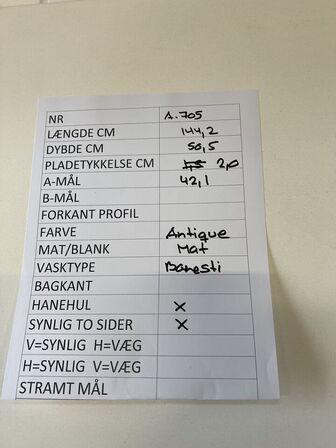 NR A.705
LÆNGDE CM 144,2
DYBDE CM 50,5
PLADETYKKELSE CM 2,0
A-MÅL 42,1
B-MÅL
FORKANT PROFIL
FARVE Antique
MAT/BLANK Mat
VASKTYPE Banesti
BAGKANT
HANEHUL X
SYNLIG TO SIDER X
V=SYNLIG H=VÆG
H=SYNLIG V=VÆG
STRAMT MÅL